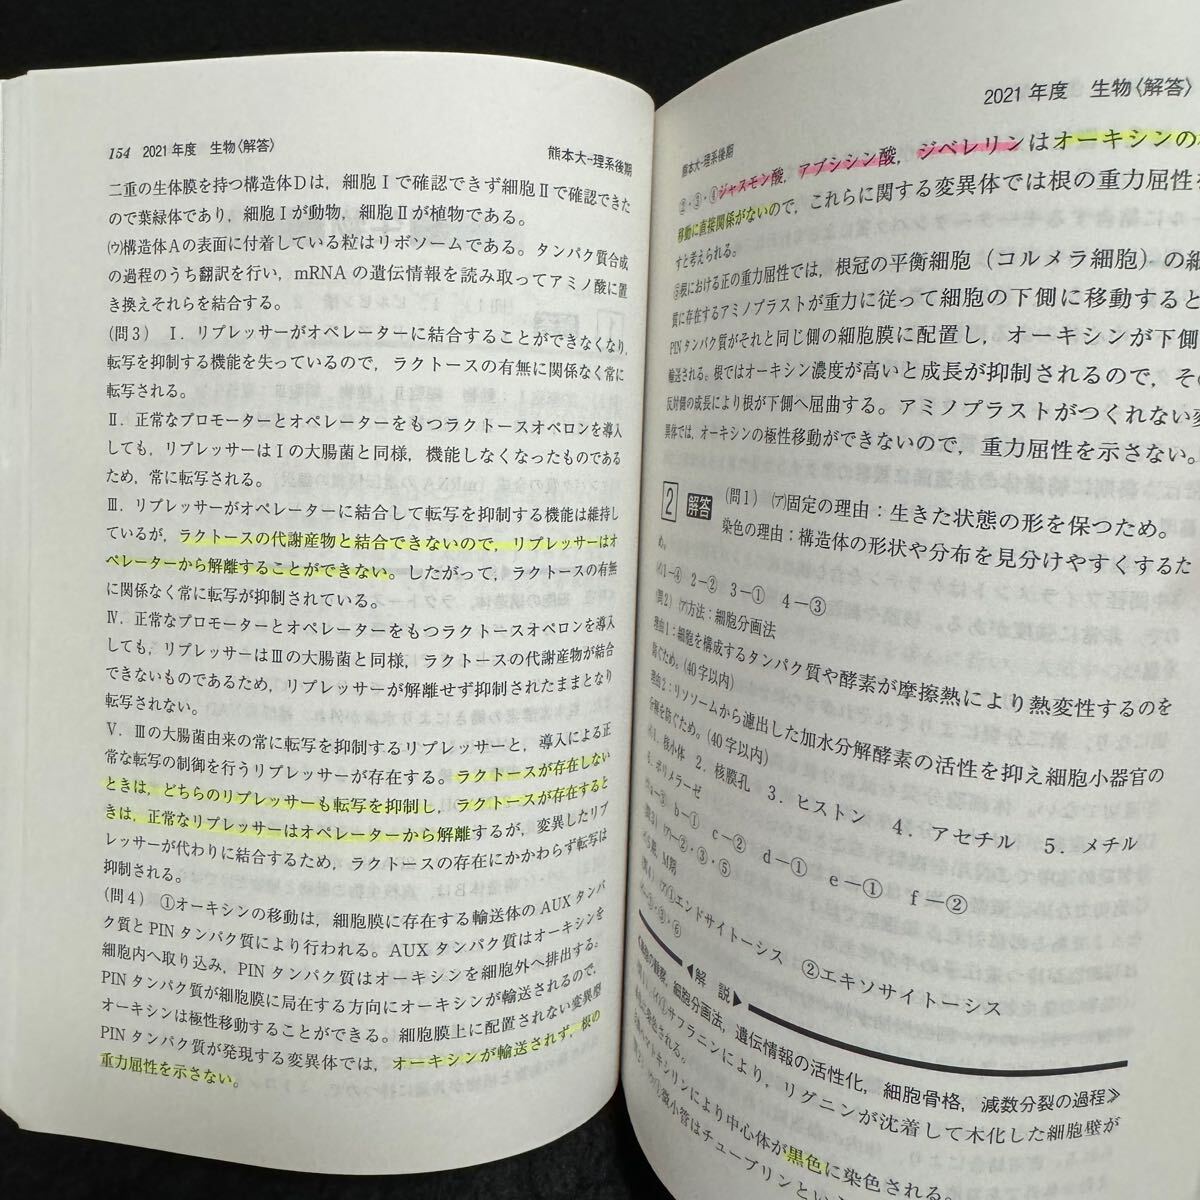 154 2021年度 生物〈解答〉
熊本大-理系後期
二重の生体膜を持つ構造体Dは，細胞Ⅰで確認できず細胞Ⅱで確認できた
ので葉緑体であり，細胞Ⅰが動物，細胞Ⅱが植物である。
(ウ)構造体Aの表面に付着している粒はリボソームである。タンパク質合成
の過程のうち翻訳を行い，mRNAの遺伝情報を読み取ってアミノ酸に置
き換えそれらを結合する。
(問3) Ⅰ．リプレッサーがオペレーターに結合することができなくなり，
転写を抑制する機能を失っているので，ラクトースの有無に関係なく常に
転写される。
Ⅱ．正常なプロモーターとオペレーターをもつラクトースオペロンを導入
しても，リプレッサーはⅠの大腸菌と同様，機能しなくなったものである
ため，常に転写される。
Ⅲ．リプレッサーがオペレーターに結合して転写を抑制する機能は維持し
ているが，ラクトースの代謝産物と結合できないので，リプレッサーはオ
ペレーターから解離することができない。したがって，ラクトースの有無
に関係なく常に転写が抑制されている。
Ⅳ．正常なプロモーターとオペレーターをもつラクトースオペロンを導入
しても，リプレッサーはⅢの大腸菌と同様，ラクトースの代謝産物が結合
できないものであるため，リプレッサーが解離せず抑制されたままとなり
転写されない。
Ⅴ．Ⅲの大腸菌由来の常に転写を抑制するリプレッサーと，導入による正
常な転写の制御を行うリプレッサーが存在する。ラクトースが存在しない
ときは，どちらのリプレッサーも転写を抑制し，ラクトースが存在すると
きは，正常なリプレッサーはオペレーターから解離するが，変異したリプ
レッサーが代わりに結合するため，ラクトースの存在にかかわらず転写は
抑制される。
(問4) ①オーキシンの移動は，細胞膜に存在する輸送体のAUXタンパ
ク質とPINタンパク質により行われる。AUXタンパク質はオーキシンを
細胞内へ取り込み，PINタンパク質はオーキシンを細胞外へ排出する。
PINタンパク質が細胞膜に局在する方向にオーキシンが輸送されるので，
オーキシンは極性移動することができる。細胞膜上に配置されない変異型
PINタンパク質が発現する変異体では，オーキシンが輸送されず，根の
重力屈性を示さない。
2021年度 生物〈解答〉
熊本大-理系後期
②・③・④ジャスモン酸，アブシシン酸，ジベレリンはオーキシンの
移動に直接関係がないので，これらに関する変異体では根の重力屈性を
すと考えられる。
⑤根における正の重力屈性では，根冠の平衡細胞（コルメラ細胞）の細
質に存在するアミノプラストが重力に従って細胞の下側に移動すると
PINタンパク質がそれと同じ側の細胞膜に配置し，オーキシンが下側
輸送される。根ではオーキシン濃度が高いと成長が抑制されるので，その
反対側の成長により根が下側へ屈曲する。アミノプラストがつくれない変
異体では，オーキシンの極性移動ができないので，重力屈性を示さない。
2 解答 (問1) (ア)固定の理由：生きた状態の形を保つため。
染色の理由：構造体の形状や分布を見分けやすくするた
め。
(イ)1－④ 2－② 3－① 4－③
(問2) (ア)方法：細胞分画法
理由1：細胞を構成するタンパク質や酵素が摩擦熱により熱変性するのを
防ぐため。(40字以内)
理由2：リソソームから漉出した加水分解酵素の活性を抑え細胞小器官の
分解を防ぐため。(40字以内)
(イ)1．核小体 2．核膜孔 3．ヒストン 4．アセチル 5．メチル
6．ポリメラーゼ
(ウ)a－③ b－① c－② d－① e－① f－②
(問3) (ア)－②・③・⑤
(イ)S期，M期
(問4) (ア)①エンドサイトーシス ②エキソサイトーシス
(イ)－③・⑥
◀解 説▶
≪細胞の観察，細胞分画法，遺伝情報の活性化，細胞骨格，減数分裂の過程≫
サフラニンにより，リグニンが沈着して木化した細胞壁が
染色される。
ヘマトキシリンにより中心体が黒色に染色される。
微小管はチューブリンとい